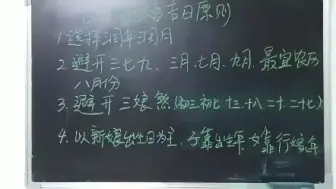 吉日原则
1.选择润年润月
2.避开三七九、三月.七月.九月.最宜农历
八月份
3.避开三娘煞(初三.初七 十三.十八 二十二.二十七)
4.以新娘出生日为主,子靠出生年女靠行嫁年